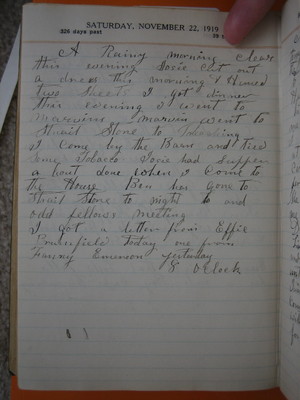 SATURDAY, NOVEMBER 22, 1919
326 days past
A Rainy morning clear
this evening Socie Cut out
a dress this morning & Hemed
two sheets I got dinner
this evening I went to
Marvins marvin went to
Strait Stone to
I come by the Barn and Tied
Some Tobacco Socie had supper
a bout done when I come to
the House Ben has gone to
Strait Stone to night to and
odd fellows meeting
I got a letter from Effie
today one from
Fanny Emerson yesturday
8 O Clock